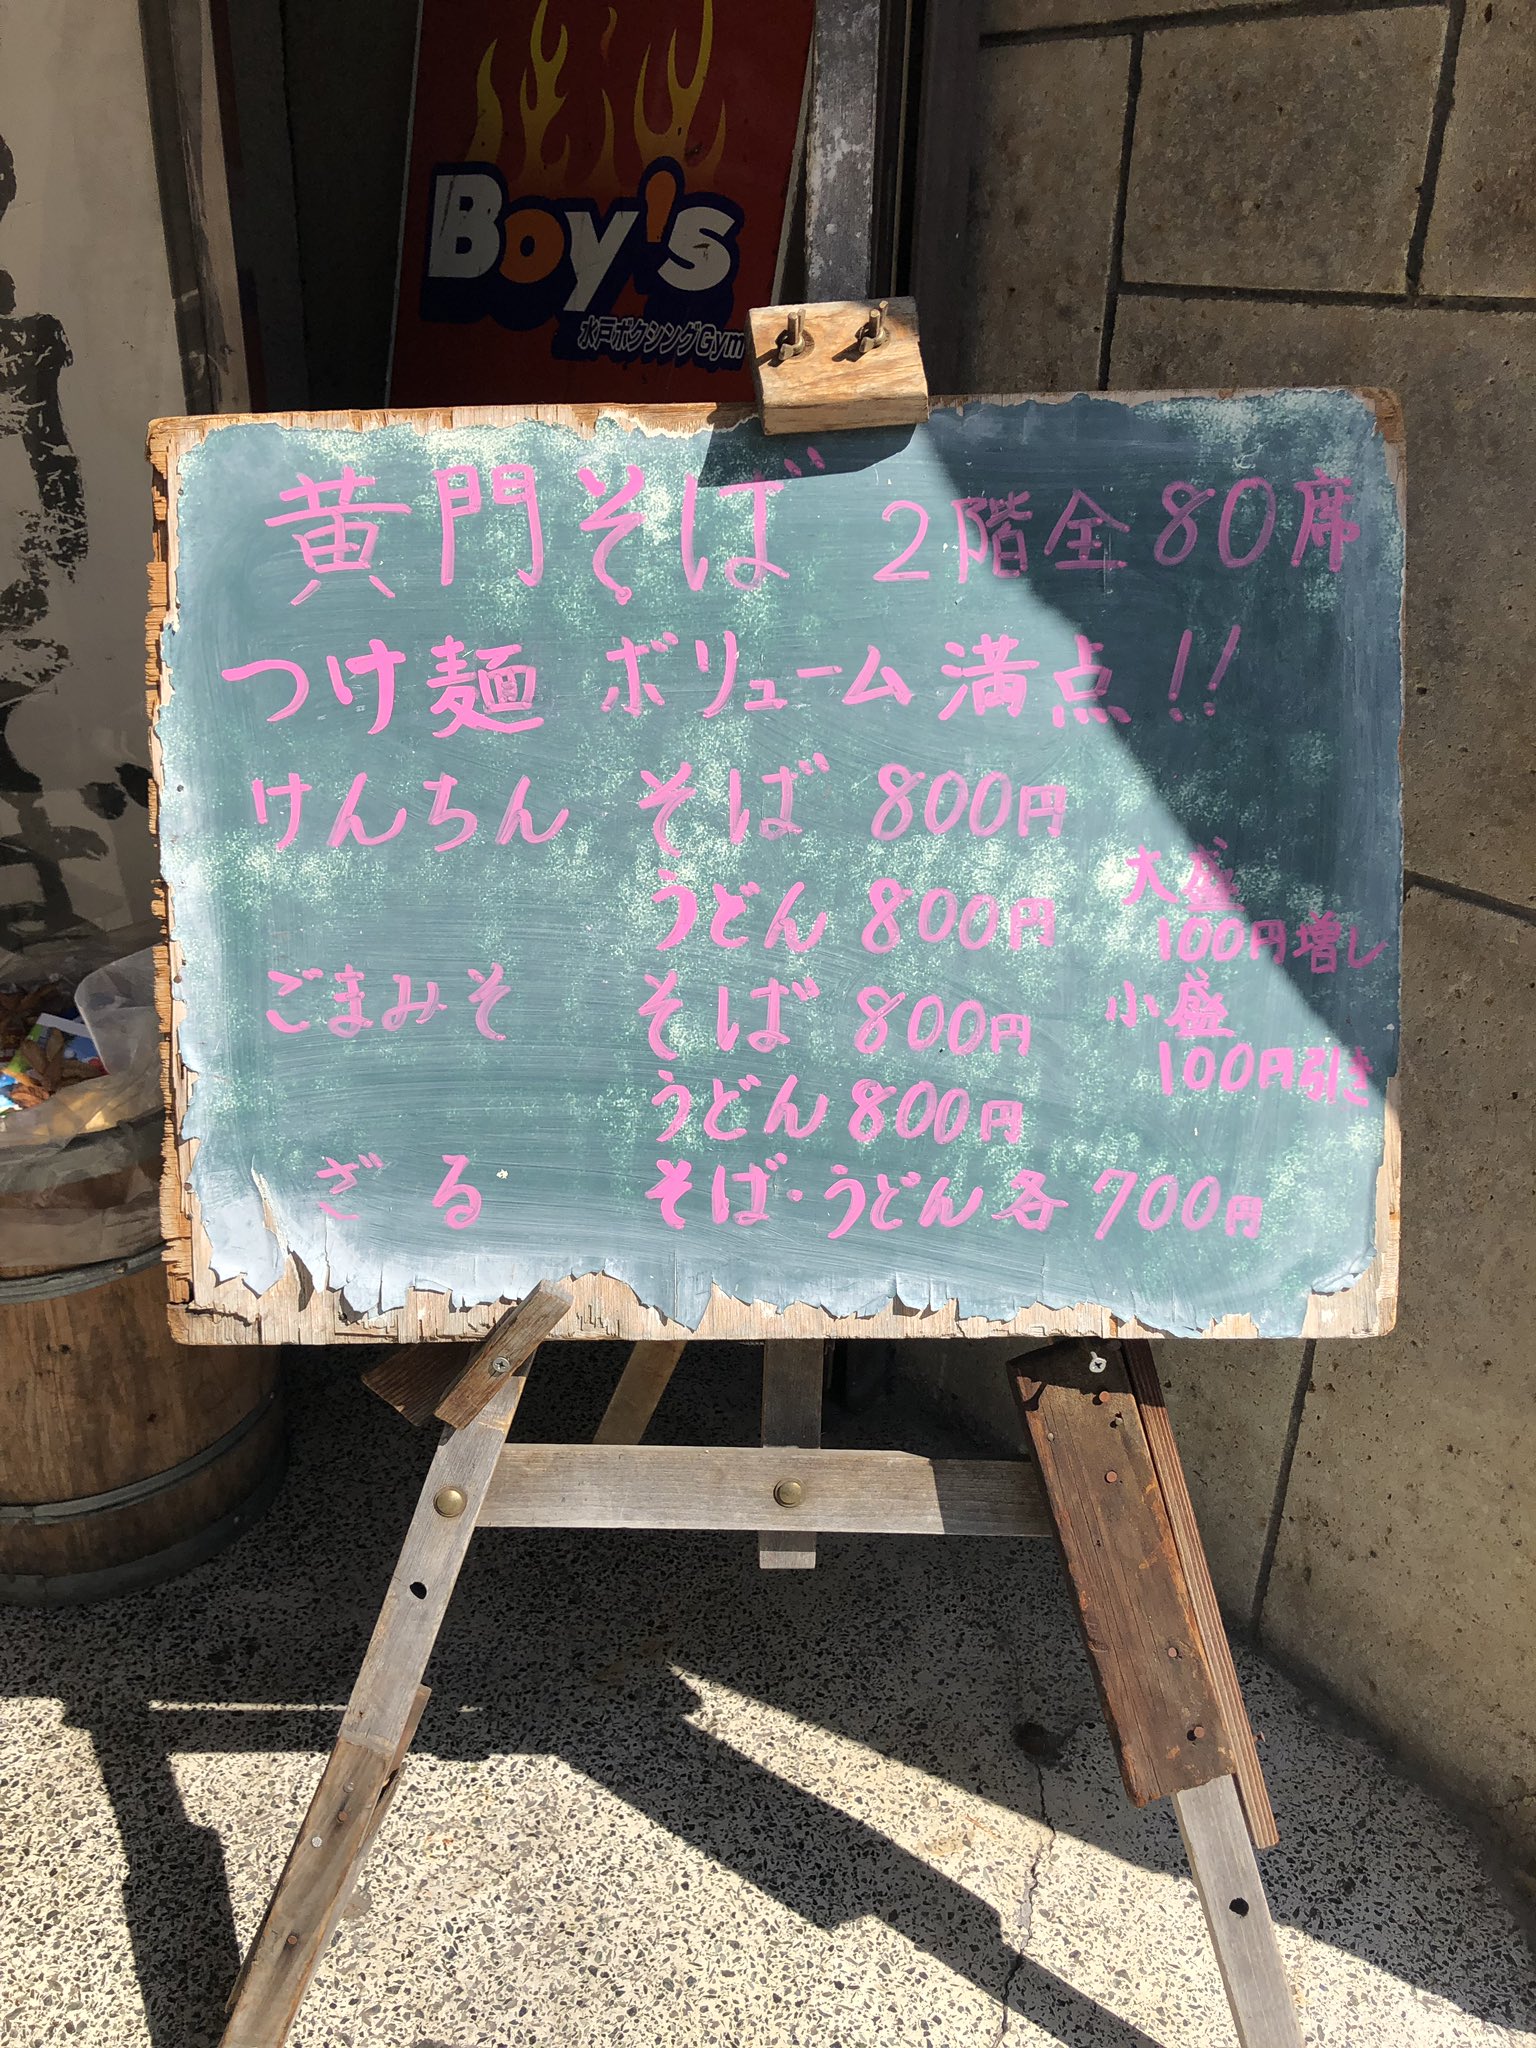 Boy's
水戸ボクシングGym
黄門そば 2階全80席
つけ麺 ボリューム満点!!
けんちん そば 800円
うどん 800円
大盛
100円増し
ごまみそ そば 800円
小盛
100円引き
うどん 800円
ざる そば・うどん各700円